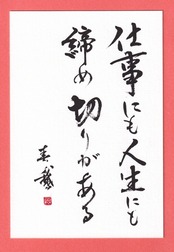 仕事にも人生にも
締め切りがある